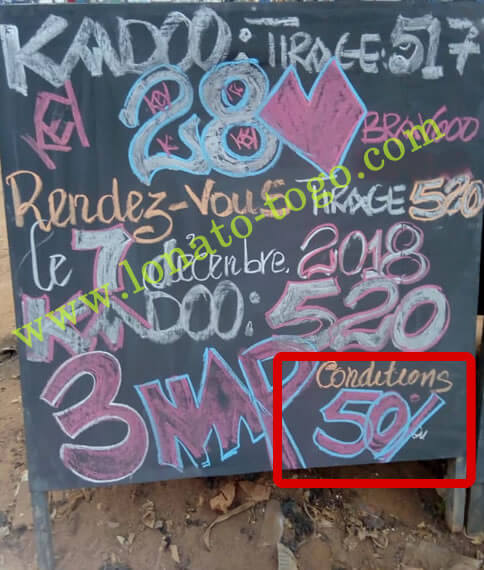 KADOO: TIRAGE: 517
28
BRAVOOO
Rendez-Vous TIRAGE 520
Le 7 décembre. 2018
KADOO: 520
3 NAP
Conditions
50%
www.lonato-togo.com